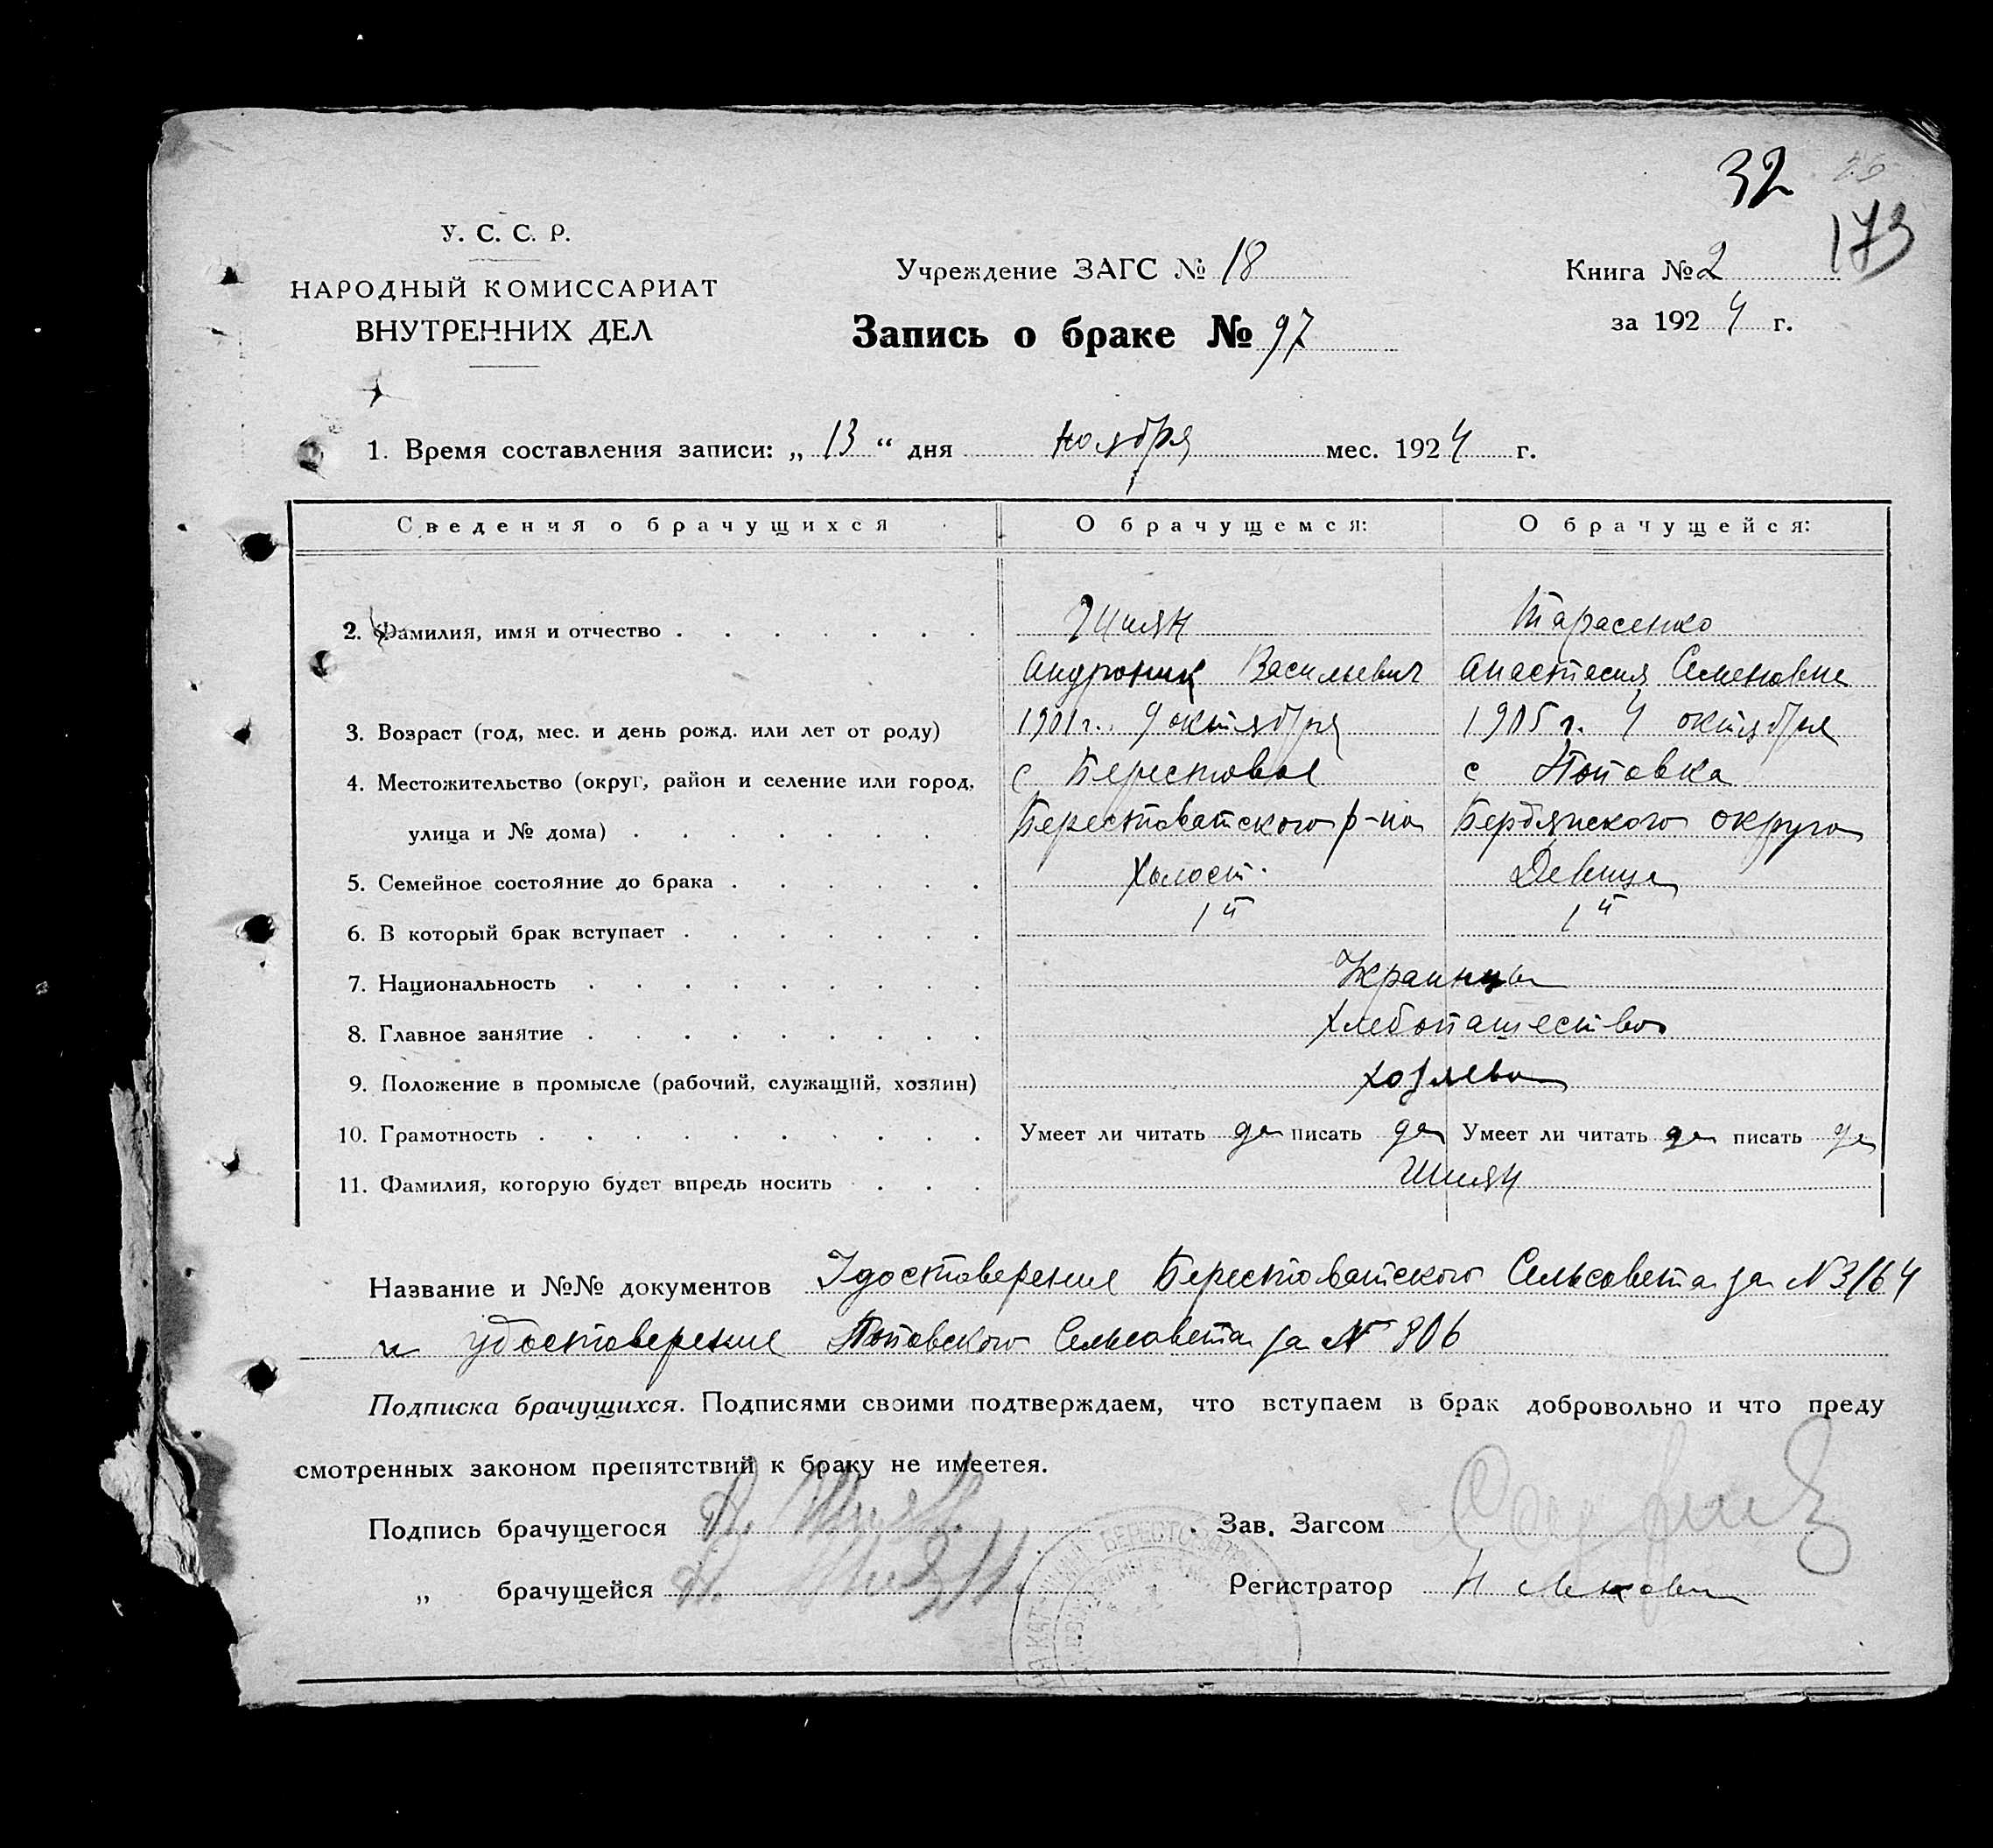 32 26
173
У. С. С. Р.
НАРОДНЫЙ КОМИССАРИАТ
ВНУТРЕННИХ ДЕЛ
Учреждение ЗАГС № 18
Запись о браке № 97
Книга № 2
за 1924 г.
1. Время составления записи: „ 13 “ дня ноября мес. 1924 г.
Сведения о брачущихся О брачущемся: О брачущейся:
2. Фамилия, имя и отчество Шиян Тарасенко
Андроник Васильевич Анастасия Семеновна
3. Возраст (год, мес. и день рожд. или лет от роду) 1901 г. 9 октября 1905 г. 4 октября
4. Местожительство (округ, район и селение или город, с Берестовое с Поповка
улица и № дома) Берестоватского р-на Бердянского округа
5. Семейное состояние до брака Холост. Девица
6. В который брак вступает 1й 1й
7. Национальность Украинцы
8. Главное занятие Хлебопашество
9. Положение в промысле (рабочий, служащий, хозяин) хозяева
10. Грамотность Умеет ли читать да писать да Умеет ли читать да писать да
11. Фамилия, которую будет впредь носить Шиян
Название и №№ документов Удостоверение Берестоватского Сельсовета за № 3164
и удостоверение Поповского Сельсовета за № 806
Подписка брачущихся. Подписями своими подтверждаем, что вступаем в брак добровольно и что преду
смотренных законом препятствий к браку не имеетея.
Подпись брачущегося А. Шиян. Зав. Загсом
„ брачущейся А. Шиян. Регистратор